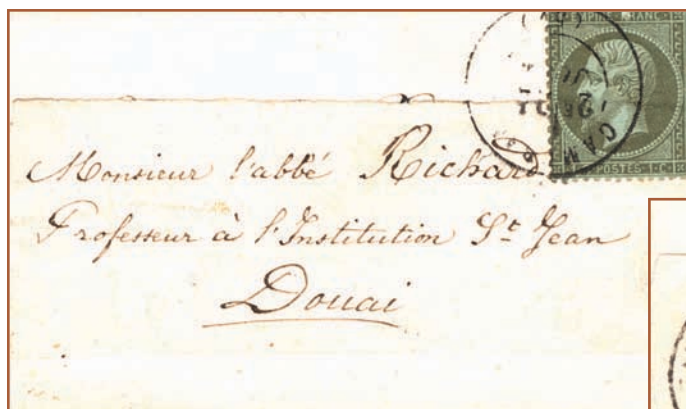 EMPIRE FRANC
POSTES · 1 · C
CAM
Monsieur l'abbé Richard
Professeur à l'Institution St Jean
Douai